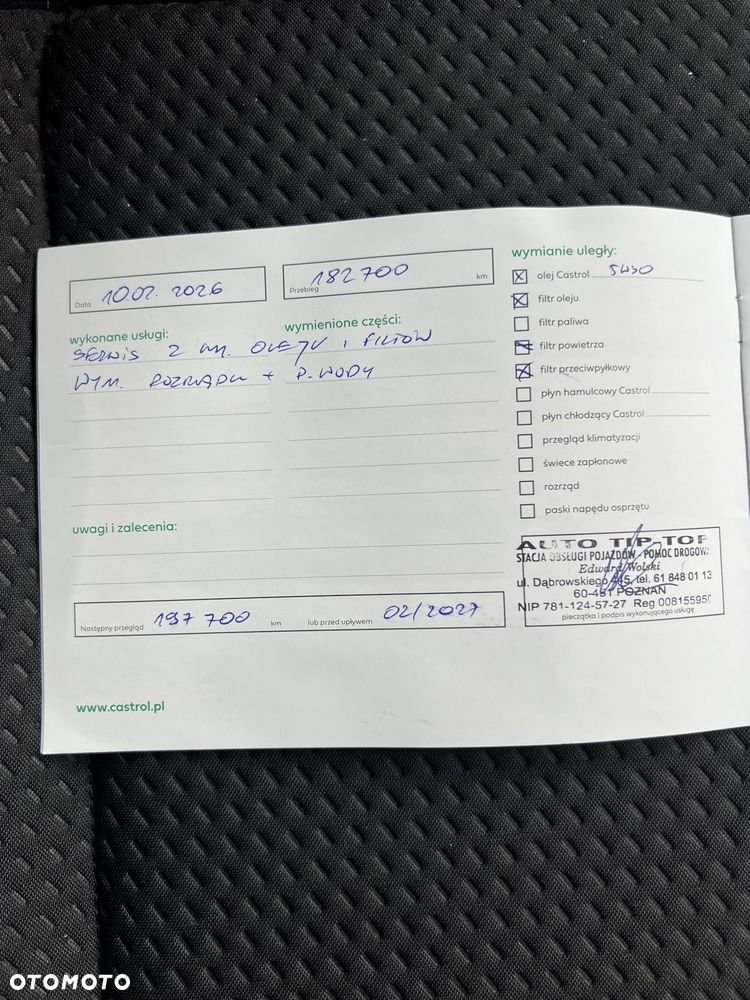 Data 10.02. 2026
Przebieg 182 700 km
wykonane usługi:
wymienione części:
SERWIS Z WYM. OLEJU I FILTÓW
WYM. ROZRZĄDU + P. WODY
uwagi i zalecenia:
Następny przegląd 197 700 km lub przed upływem 02/2027
www.castrol.pl
wymianie uległy:
olej Castrol 5W30
filtr oleju
filtr paliwa
filtr powietrza
filtr przeciwpyłkowy
płyn hamulcowy Castrol
płyn chłodzący Castrol
przegląd klimatyzacji
świece zapłonowe
rozrząd
paski napędu osprzętu
AUTO TIP-TOP
STACJA OBSŁUGI POJAZDÓW, POMOC DROGOWA
Edward Wolski
ul. Dąbrowskiego tel. 61 848 01 13
60-451 POZNAŃ
NIP 781-124-57-27 Reg 00815595
pieczątka i podpis wykonującego usługę
OTOMOTO